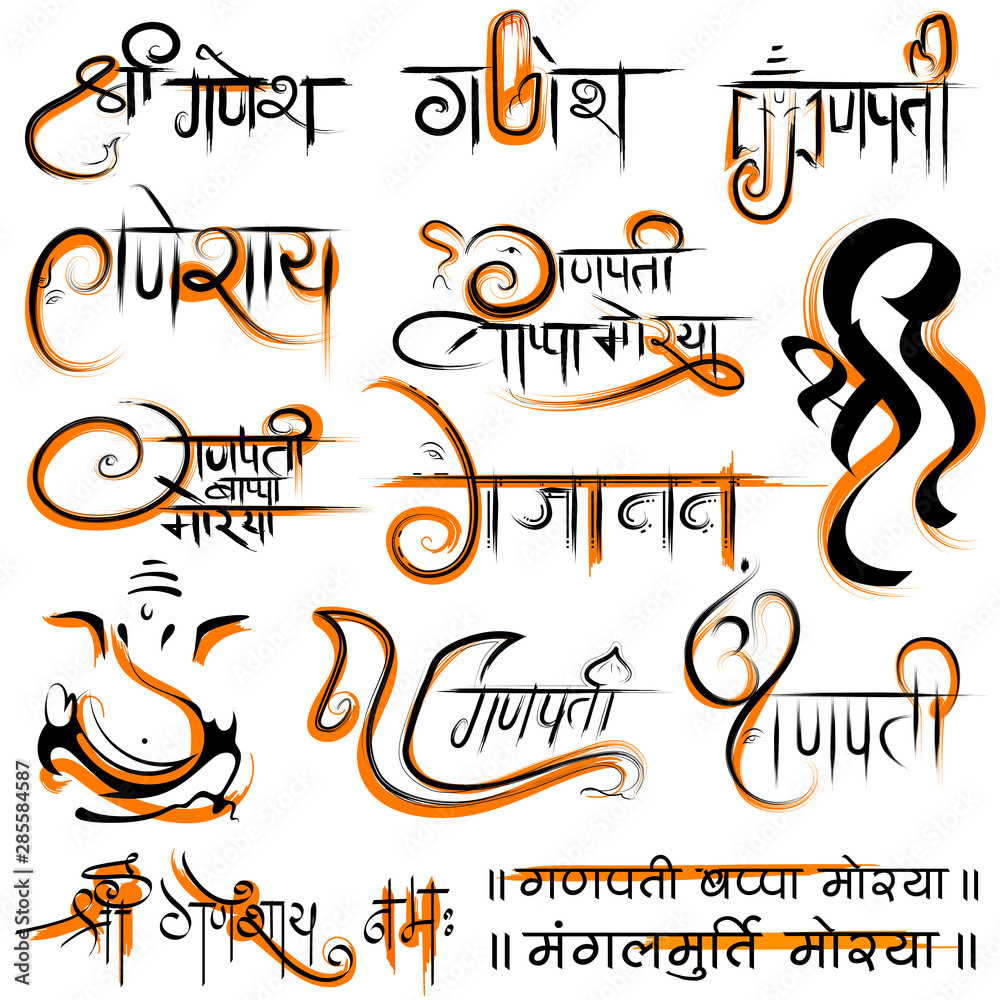 श्री गणेश
गणेश
गणपती
गणेशाय
गणपती
बाप्पा मोरया
श्री
गणपती
बाप्पा
मोरया
गजानन
गणपती
गणपती
श्री गणेशाय नमः
॥ गणपती बप्पा मोरया ॥
॥ मंगलमुर्ति मोरया ॥
Adobe Stock | #285584587